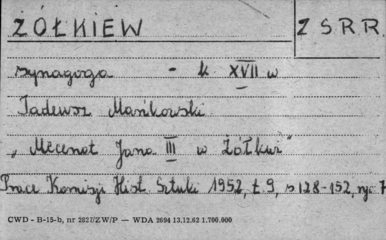 ŻÓŁKIEW
Z S R R.
synagoga - k XVII w
Tadeusz Mańkowski
"Mecenat Jana III w Żółkwi"
Prace Komisji Hist. Sztuki 1952, t. 9, s 128-152, ryc. 7
CWD - B-15-b, nr 2827/ZW/P — WDA 2694 13.12.62 1.700.000